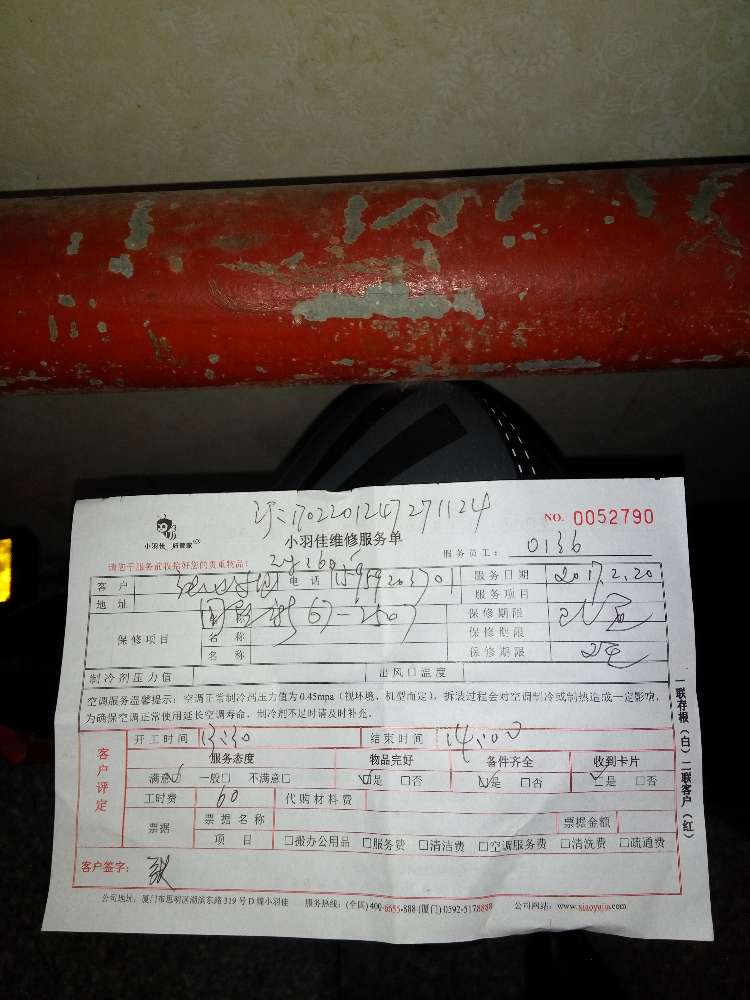 1702201247271124
NO. 0052790
小羽佳 好管家
小羽佳维修服务单
请您于服务前收拾好您的贵重物品!
服务员工: 0136
客户 电话 服务日期 2017.2.20
地址 服务项目
保修项目 保修期限
名称 保修期限
名称 保修期限
制冷剂压力值 出风口温度
空调服务温馨提示: 空调正常制冷剂压力值为0.45mpa (视环境、机型而定), 拆装过程会对空调制冷或制热造成一定影响,
为确保空调正常使用延长空调寿命, 制冷剂不足时请及时补充。
客户评定
开工时间 13:30 结束时间 14:00
服务态度 物品完好 备件齐全 收到卡片
满意☑ 一般□ 不满意□ ☑是 □否 ☑是 □否 ☑是 □否
工时费 60 代购材料费
票据 票据名称 票据金额
项目 □搬办公用品 □服务费 □清洁费 □空调服务费 □清洗费 □疏通费
客户签字: 张
一联存根(白) 二联客户(红)
公司地址: 厦门市思明区湖滨东路319号D幢小羽佳 服务热线: (全国)400-6655-888 (厦门)0592-5178888 公司网站: www.xiaoyujia.com